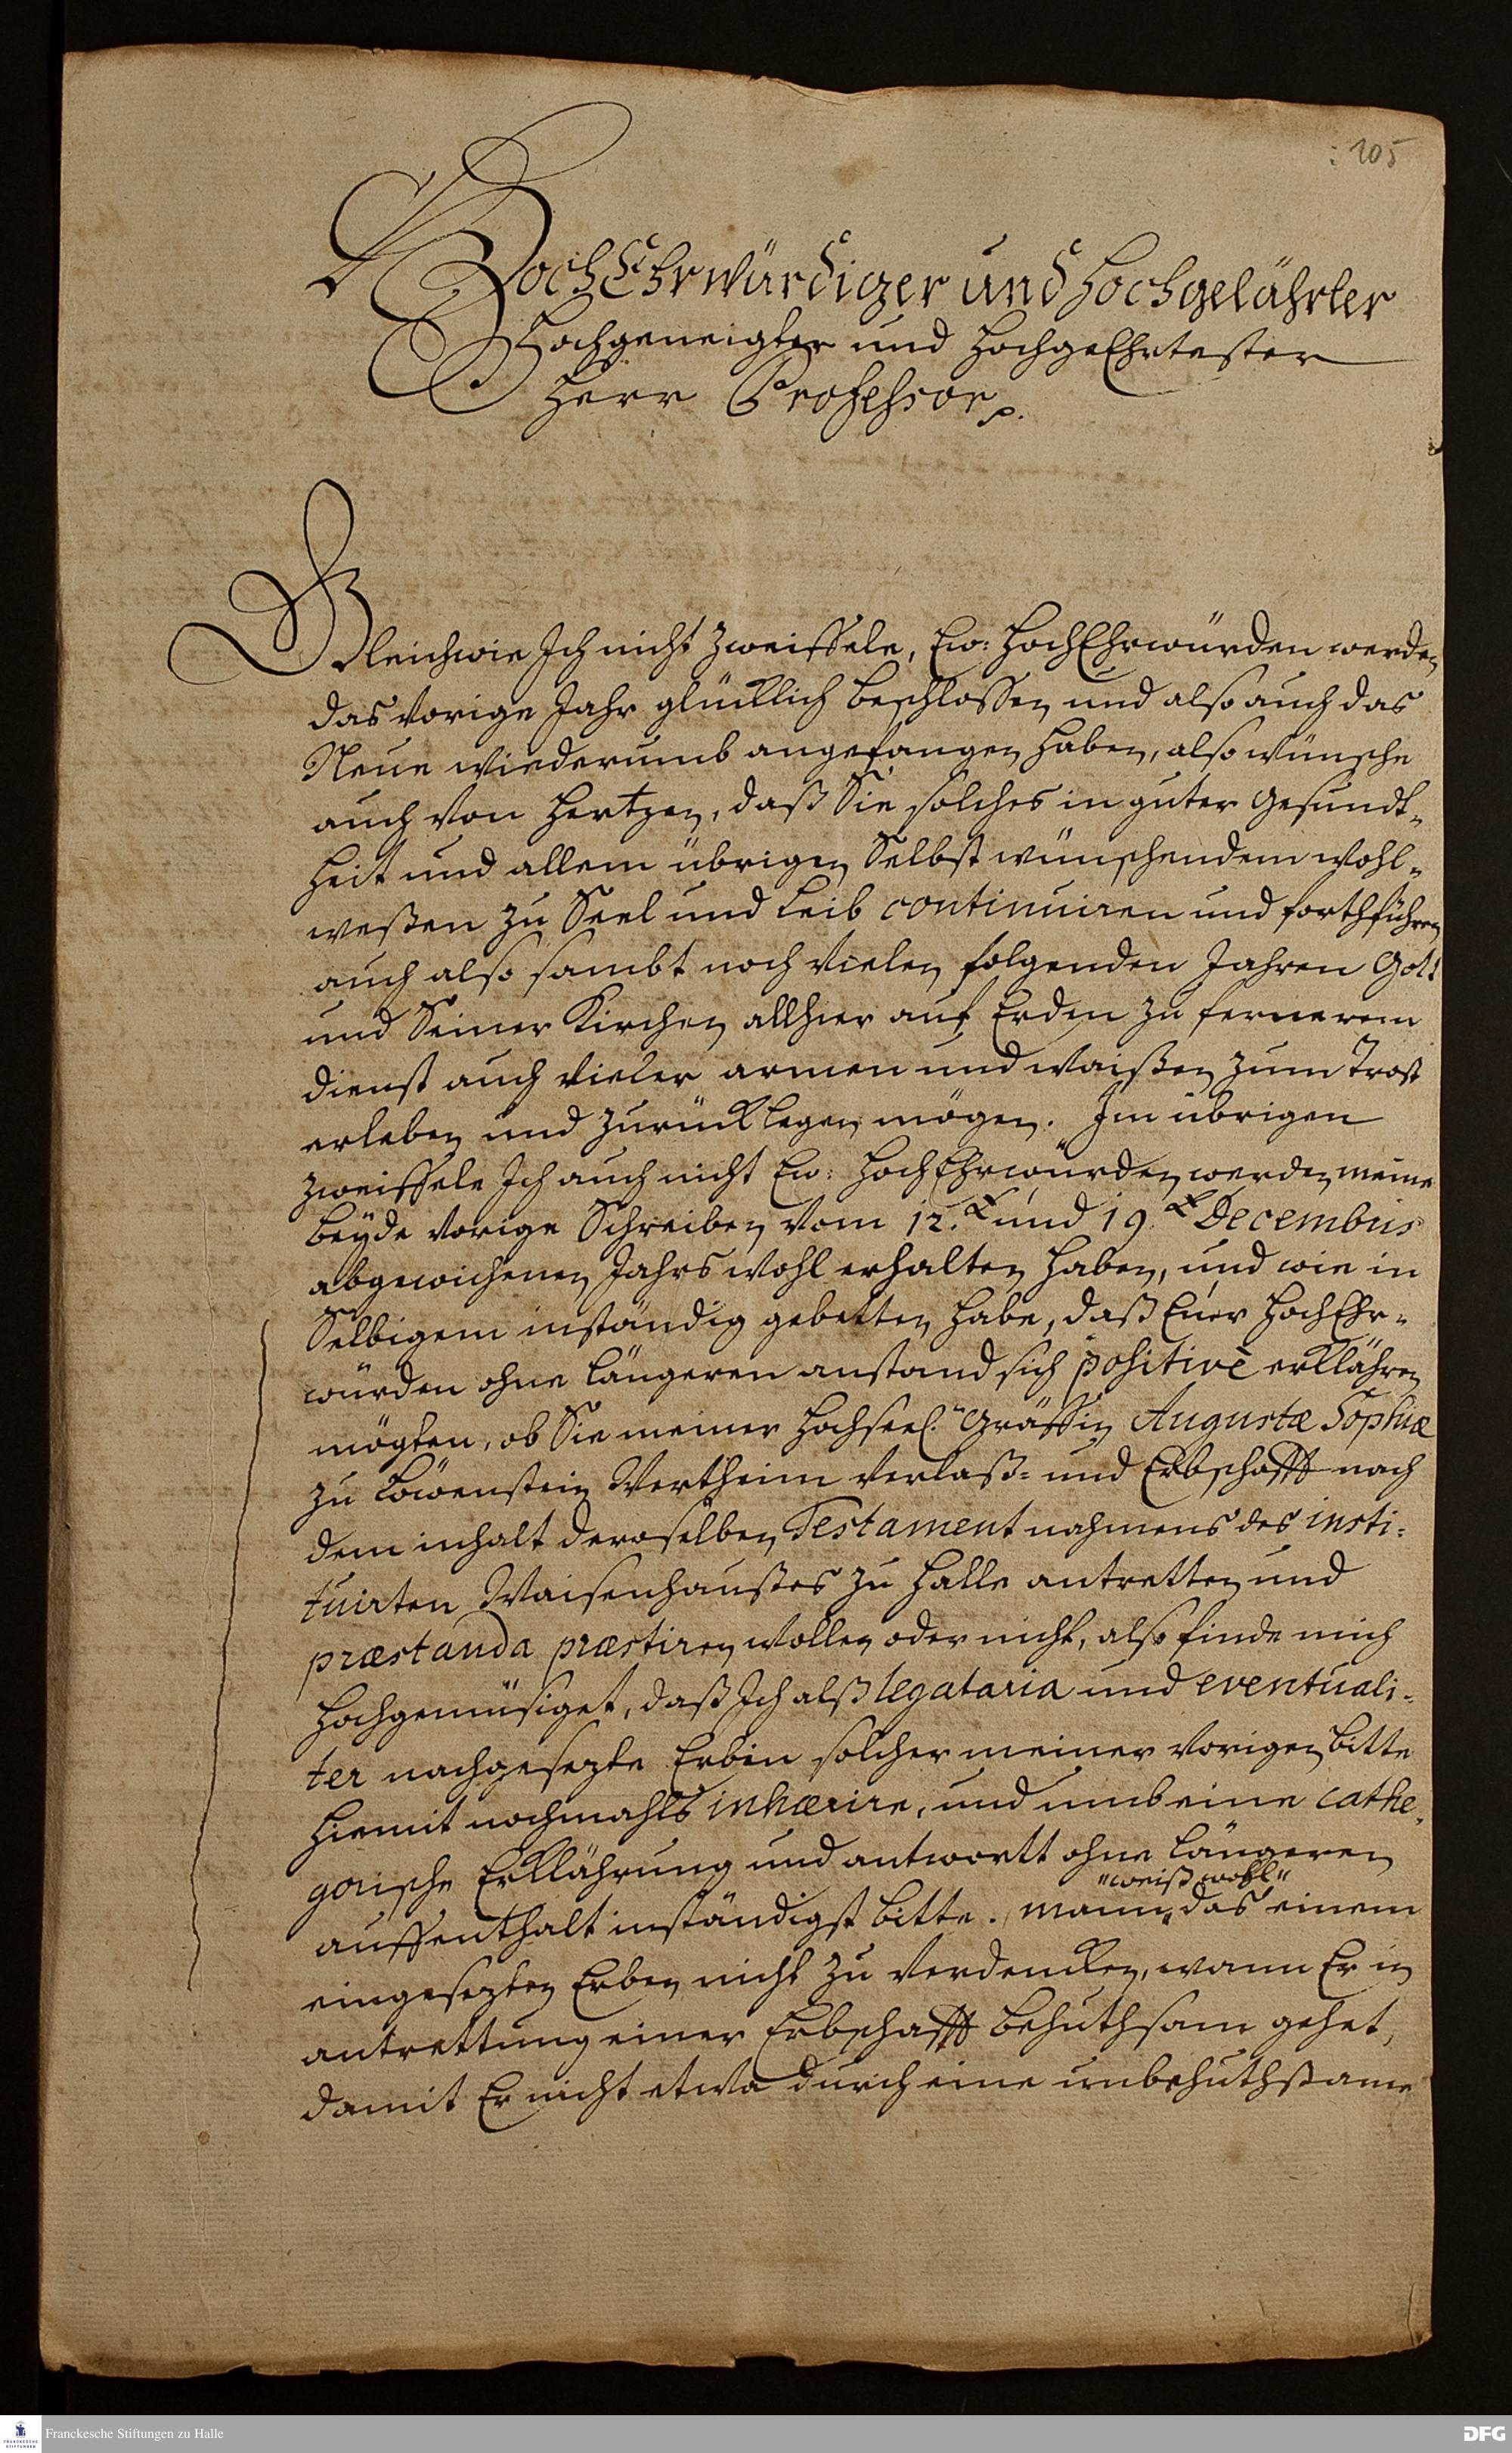 : 105
HochEhrwürdiger und Hochgelährter
Hochgeneigter und HochgeEhrtester
Herr Professor p.
Gleichwie Ich nicht zweiffele, Ew: HochEhrwürden werden
das vorige Jahr glücklich beschlossen und also auch das
Neue wiederumb angefangen haben, also wünsche
auch von Hertzen, daß Sie solches in guter Gesundt-
heit und allem übrigen Selbst wünschendem wohl-
weßen zu Seel und Leib continuiren und forthführen
auch also sambt noch vielen folgenden Jahren Gott
und Seiner Kirchen allhier auf Erden zu fernerem
dienst auch vieler armen und waißen zum Trost
erleben und zurücklegen mögen. Im übrigen
zweiffele Ich auch nicht Ew: HochEhrwürden werden meine
beyde vorige Schreiben vom 12.t und 19.t Decembris
abgewichenen Jahrs wohl erhalten haben, und wie in
Selbigem inständig gebetten habe, daß Euer HochEhr-
würden ohne längeren anstand sich positivè erklähren
mögten, ob Sie meiner Hochseel. Gräffin Augustæ Sophiæ
zu Löwenstein Wertheim Verlaß- und Erbschafft nach
dem inhalt deroselben Testament nahmens des insti-
tuirten Waisenhaußes zu Halle antretten und
præstanda præstiren wollen oder nicht, also finde mich
hochgemüsiget, daß Ich alß legataria und eventuali-
ter nachgesezte Erbin solcher meiner vorigen bitte
hiemit nochmahls inhærire, und umb eine cathe-
gorische Erklährung und antwortt ohne längeren
"weiß wohl"
auffenthalt inständigst bitte. mann das einem
eingesezten Erben nicht zu verdencken, wann Er in
antrettung einer Erbschafft behuthsam gehet,
damit Er nicht etwa durch eine unbehuthsame
Franckesche Stiftungen zu Halle
DFG